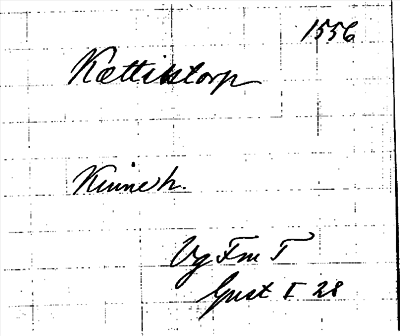 1556
Kættilstorp
Kinneh.
Vg Fm T
Gust I 28